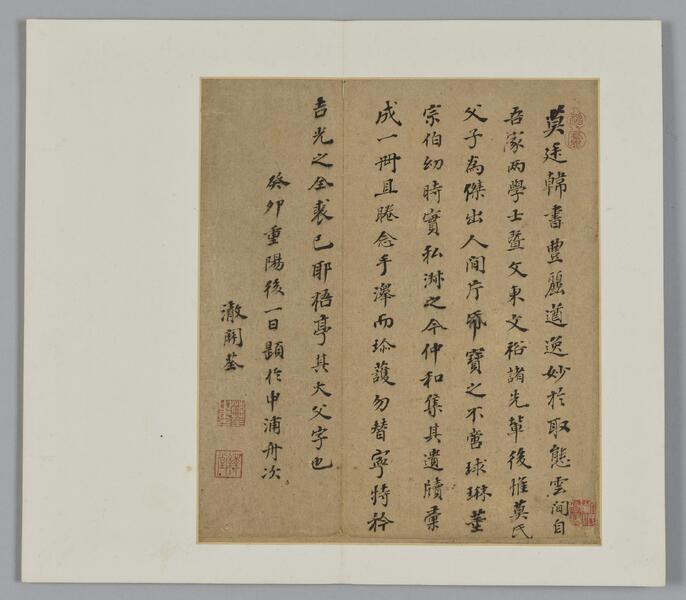 莫廷韓書豊麗遒逸妙於取態雲間自
吾家两學士暨文東文裕諸先軰後惟莫氏
父子為傑出人間片帋寶之不啻球琳董
宗伯幼時實私淑之今仲和集其遺牘彙
成一冊且睠念手澤而珍護勿替寧特矜
吉光之全裘已耶梧亭其大父字也
癸卯重陽後一日題於申浦舟次
荃